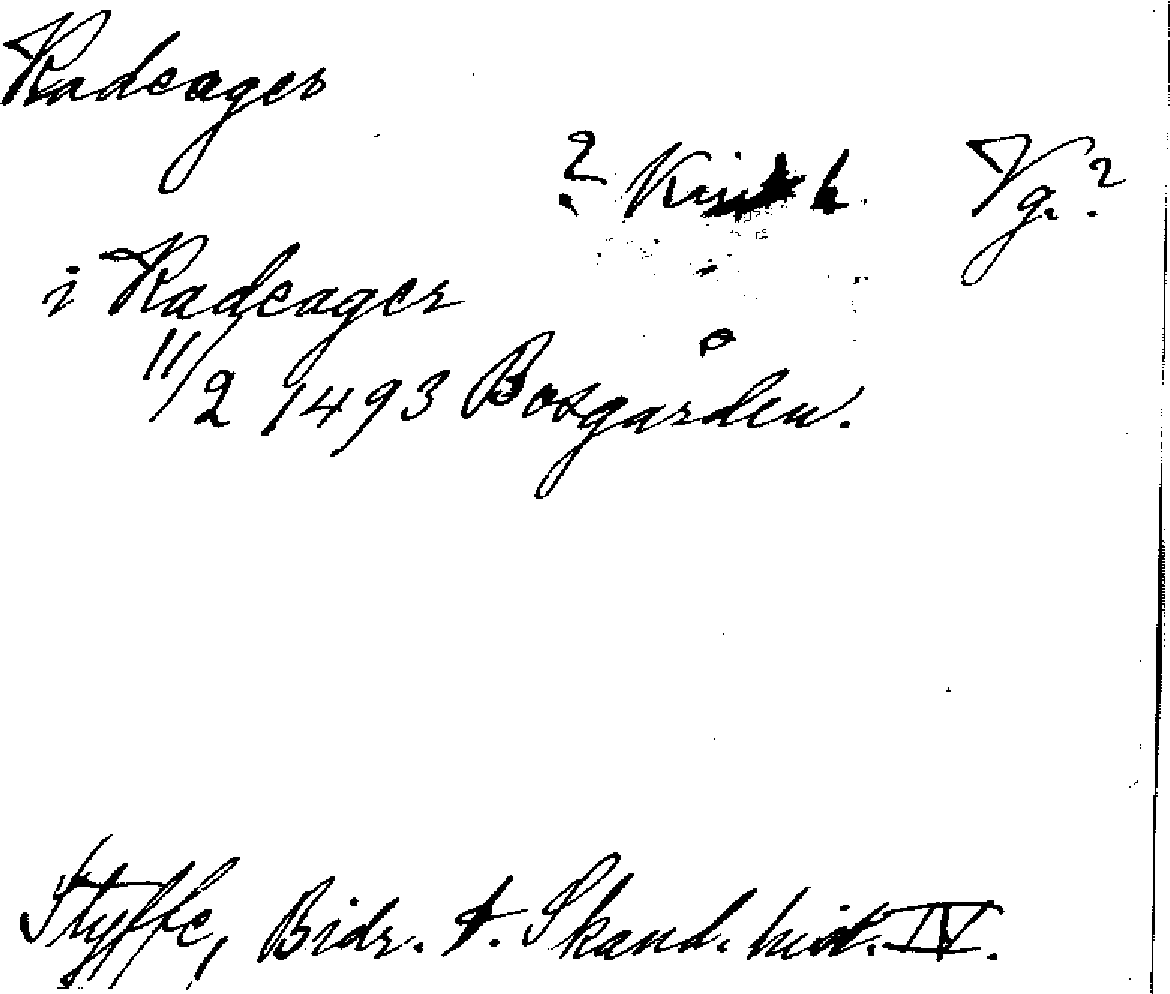 Radeager
? Vg.?
i Radeager
11/2 1493 Bosgården.
Styffe, Bidr. t. Skand. hist. IV.